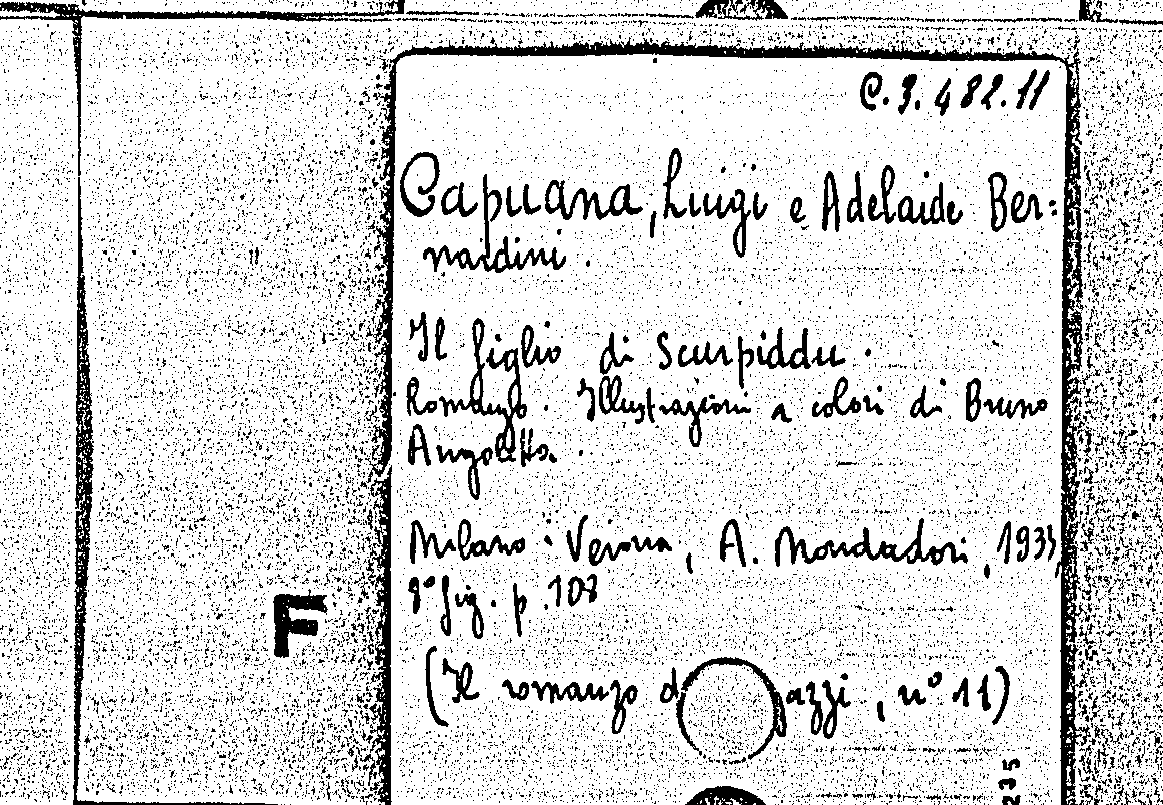 C.9.482.11
Capuana, Luigi e Adelaide Ber=
nardini.
Il figlio di Scurpiddu.
Romanzo. Illustrazioni a colori di Bruno
Angoletta.
Milano-Verona, A. Mondadori, 1933,
8° fig. p. 108
F
(Il romanzo d azzi, n° 11)
235